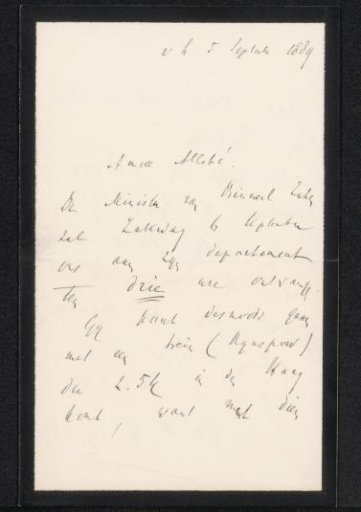 5 September 1889
Amice Allebé!
De Minister van Binnenl. Zaken
zal Zaterdag 6 September
ons aan zijn departement
ten drie ure ontvangen.
Gij kunt desnoods gaan
met een trein (Rijnspoor)
die 2.54 in den Haag
komt, want met dien